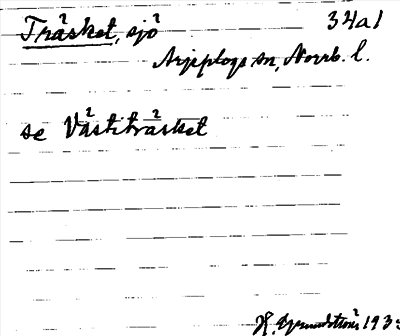 Träsket, sjö 34a1
Arjeplogs sn, Norrb. l.
se Västiträsket
H. Grundström 193